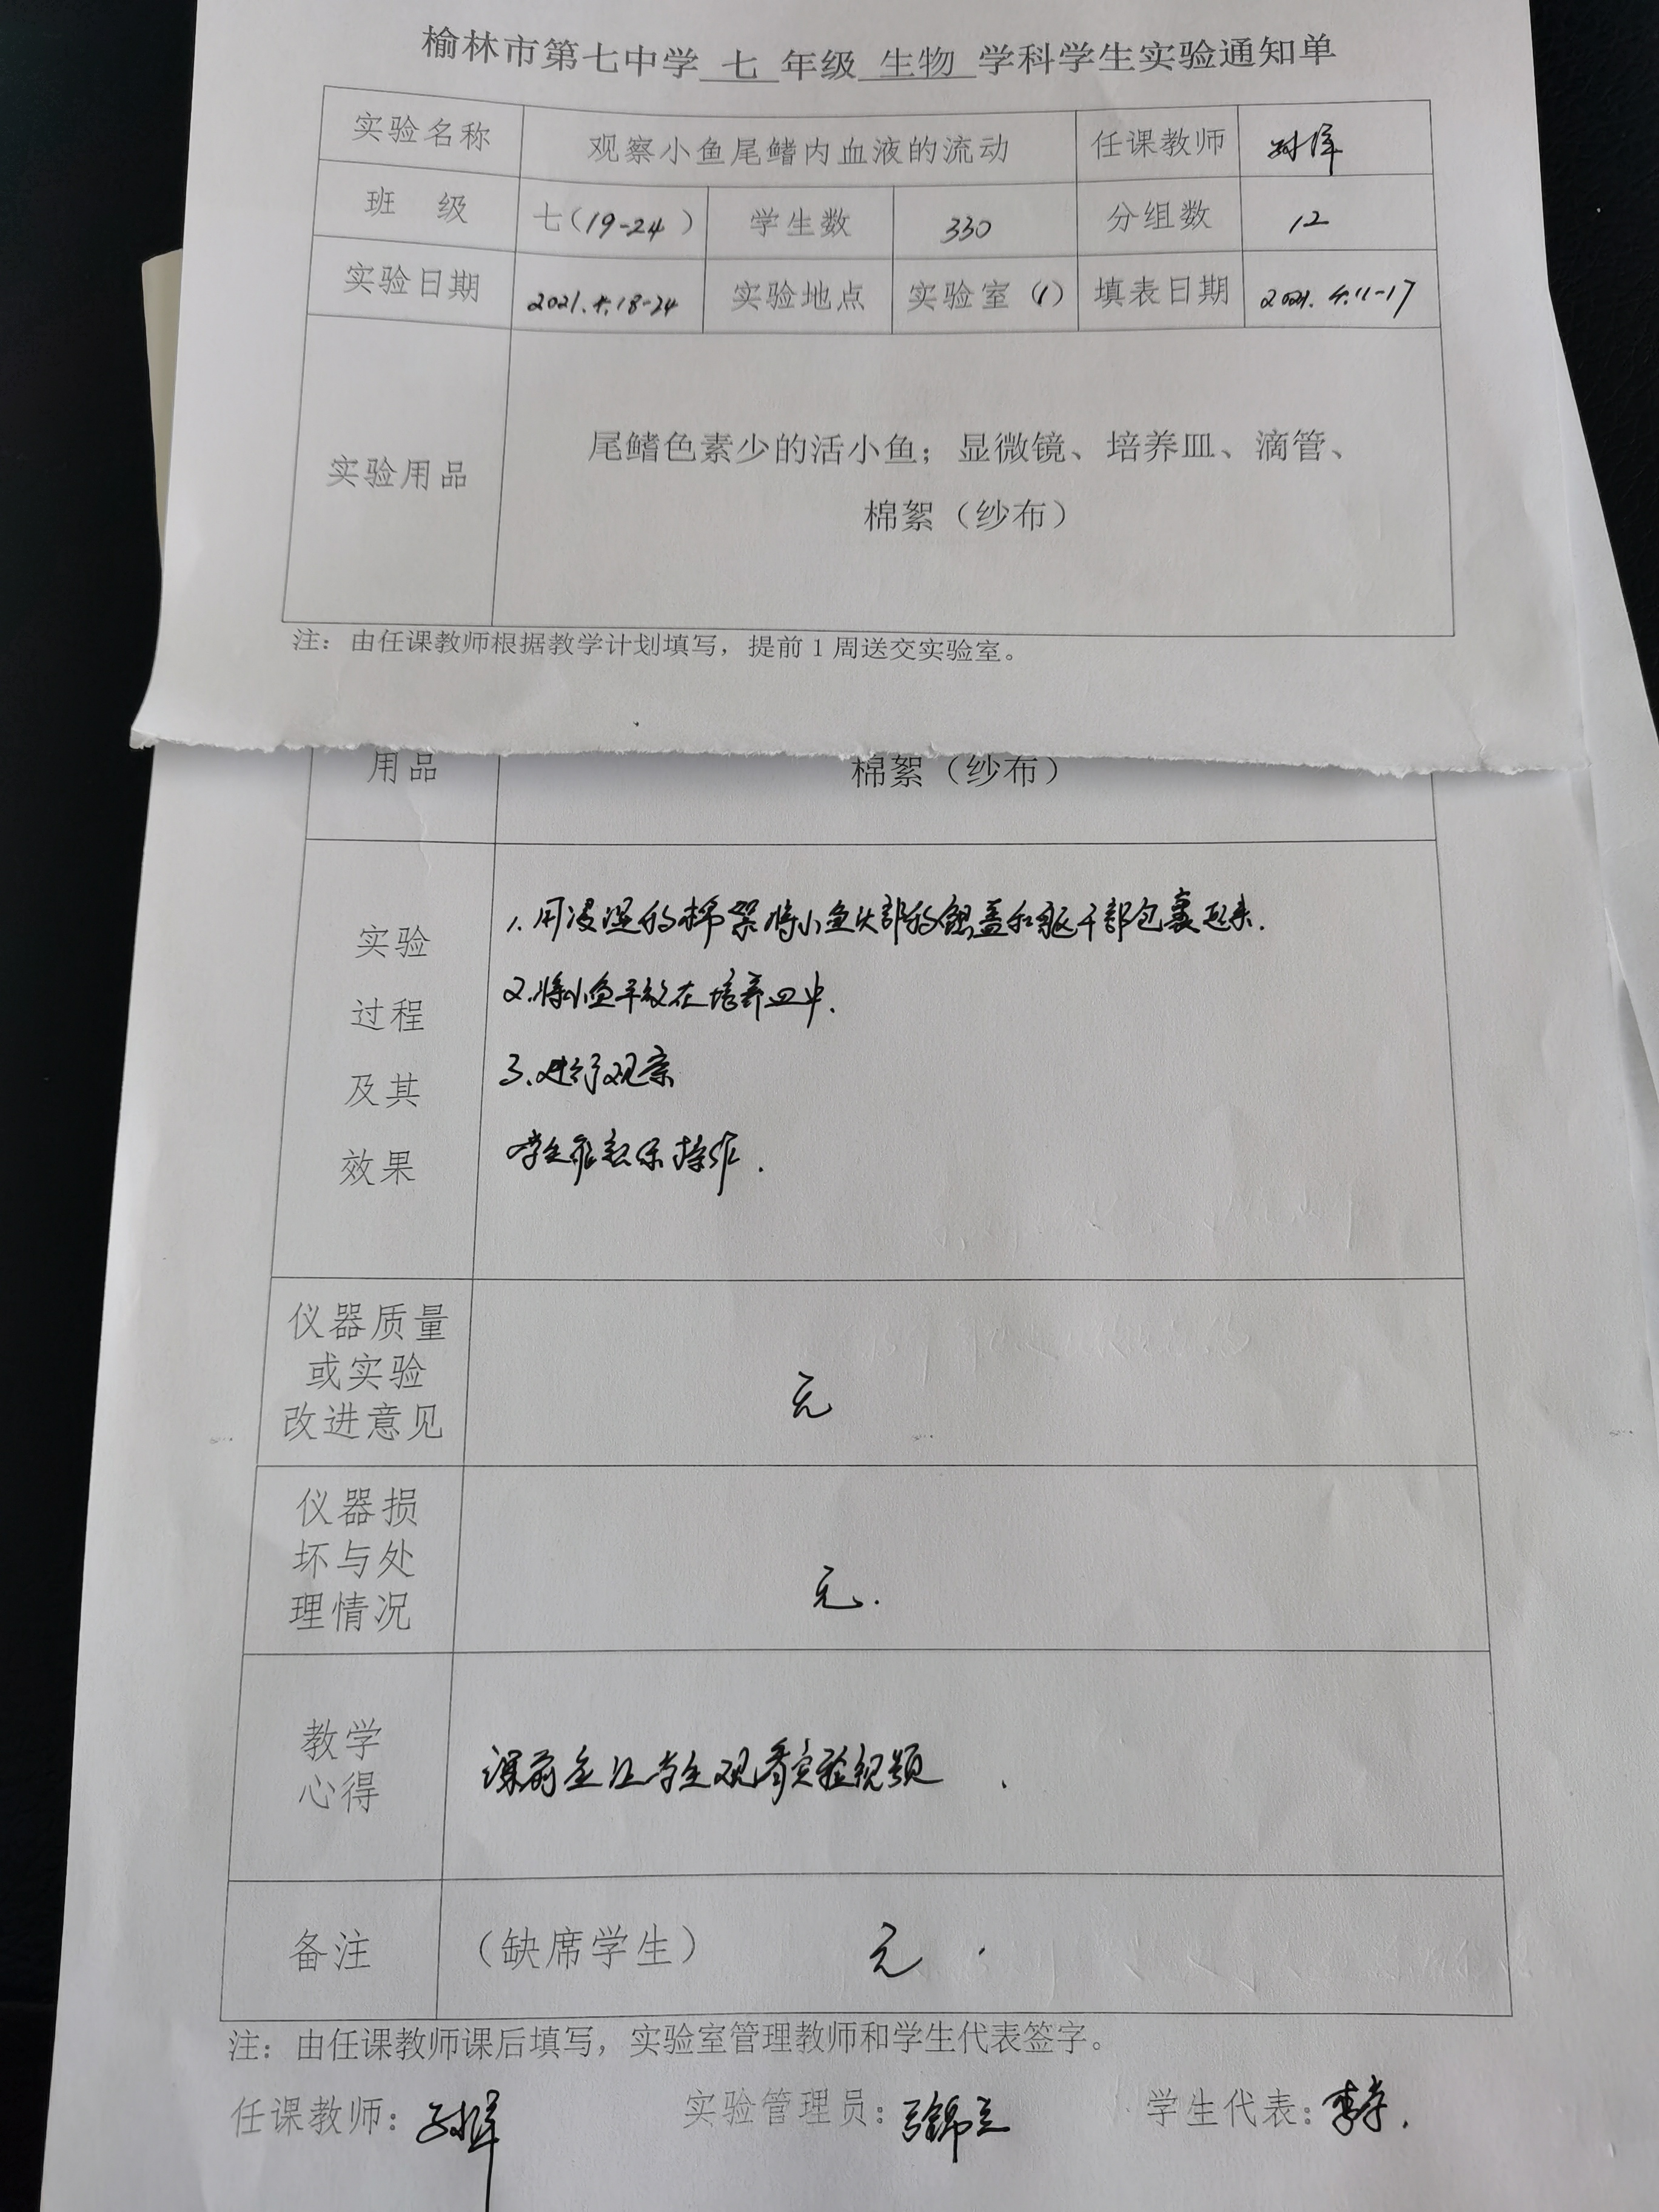 榆林市第七中学 七 年级 生物 学科学生实验通知单
实验名称 观察小鱼尾鳍内血液的流动 任课教师
班 级 七(19-24) 学生数 330 分组数 12
实验日期 2021.4.18-24 实验地点 实验室(1) 填表日期 2021.4.11-17
实验用品 尾鳍色素少的活小鱼；显微镜、培养皿、滴管、
棉絮（纱布）
注：由任课教师根据教学计划填写，提前1周送交实验室。
用品 棉絮（纱布）
实验
过程
及其
效果
1.用浸湿的棉絮将小鱼头部的鳃盖和躯干部包裹起来.
2.将小鱼平放在培养皿中.
3.进行观察
学生能熟练操作.
仪器质量
或实验
改进意见
无
仪器损
坏与处
理情况
无.
教学
心得
课前应让学生观看实验视频.
备注 （缺席学生） 无.
注：由任课教师课后填写，实验室管理教师和学生代表签字。
任课教师： 实验管理员： 学生代表：